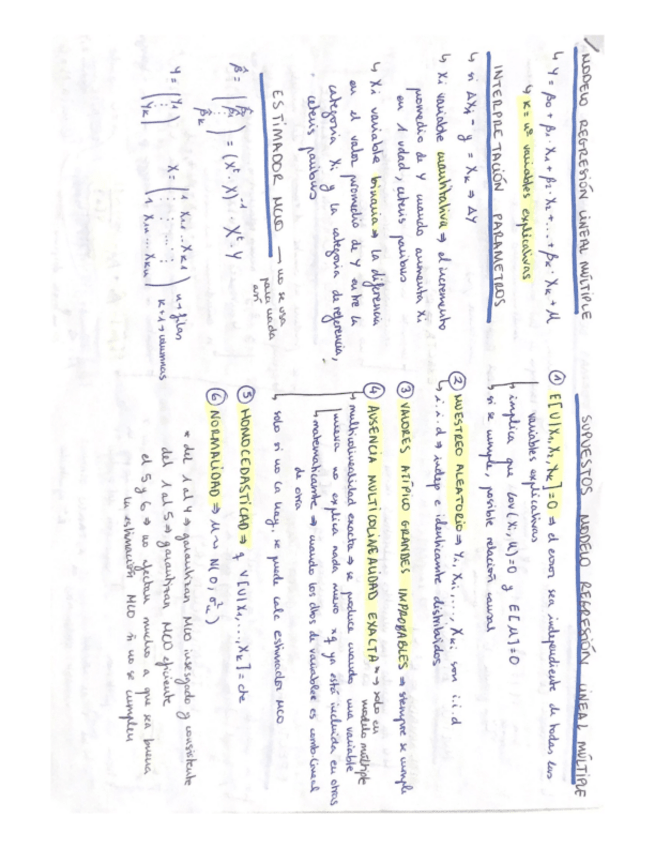 MODELO REGRESIÓN LINEAL MÚLTIPLE
↳ Y = β0 + β1·X1 + β2·X2 + ... + βK·XK + μ
↳ K = nº variables explicativas
INTERPRETACIÓN PARÁMETROS
↳ si ΔXi - y = XK ⇒ ΔY
↳ Xi variable cuantitativa ⇒ el incremento
promedio de Y cuando aumenta Xi
en 1 udad, ceteris paribus
↳ Xi variable binaria ⇒ la diferencia
en el valor promedio de Y entre la
categoría Xi y la categoría de referencia,
ceteris paribus
ESTIMADOR MCO → no se usa
para nada
así
β̂ = (β̂0 ⋮ β̂K) = (Xᵗ·X)⁻¹·Xᵗ·Y
Y = (Y1 ⋮ YK) X = (1 X11 ... XK1 ⋮ ⋮ ⋮ 1 X1n ... XKn) n → filas
K+1 → columnas
SUPUESTOS MODELO REGRESIÓN LINEAL MÚLTIPLE
① E[U|X1, X2, XK] = 0 ⇒ el error sea independiente de todas las
variables explicativas
↳ implica que cov(Xi, μ) = 0 y E[μ] = 0
↳ si se cumple, posible relación causal
② MUESTREO ALEATORIO ⇒ Yi, X1i, ..., XKi son i.i.d
↳ i.i.d ⇒ indep e identicamte distribuidos
③ VALORES ATÍPICO GRANDES IMPROBABLES ⇒ siempre se cumple
④ AUSENCIA MULTICOLINEALIDAD EXACTA → solo en
modelo múltiple
↳ multicolinealidad exacta ⇒ se produce cuando una variable
nueva no explica nada nuevo xq ya está incluida en otras
↳ matemáticamte ⇒ cuando los dtos de variables es comb. lineal
de otra
↳ solo si no la hay, se puede calc estimador MCO
⑤ HOMOCEDASTICIDAD ⇒ q V[U|X1, ..., XK] = cte
⑥ NORMALIDAD ⇒ μ ~ N(0, σ²u)
* del 1 al 4 ⇒ garantizan MCO insesgado y consistente
del 1 al 5 ⇒ garantizan MCO eficiente
el 5 y 6 ⇒ no afectan mucho a que sea buena
la estimación MCO si no se cumplen